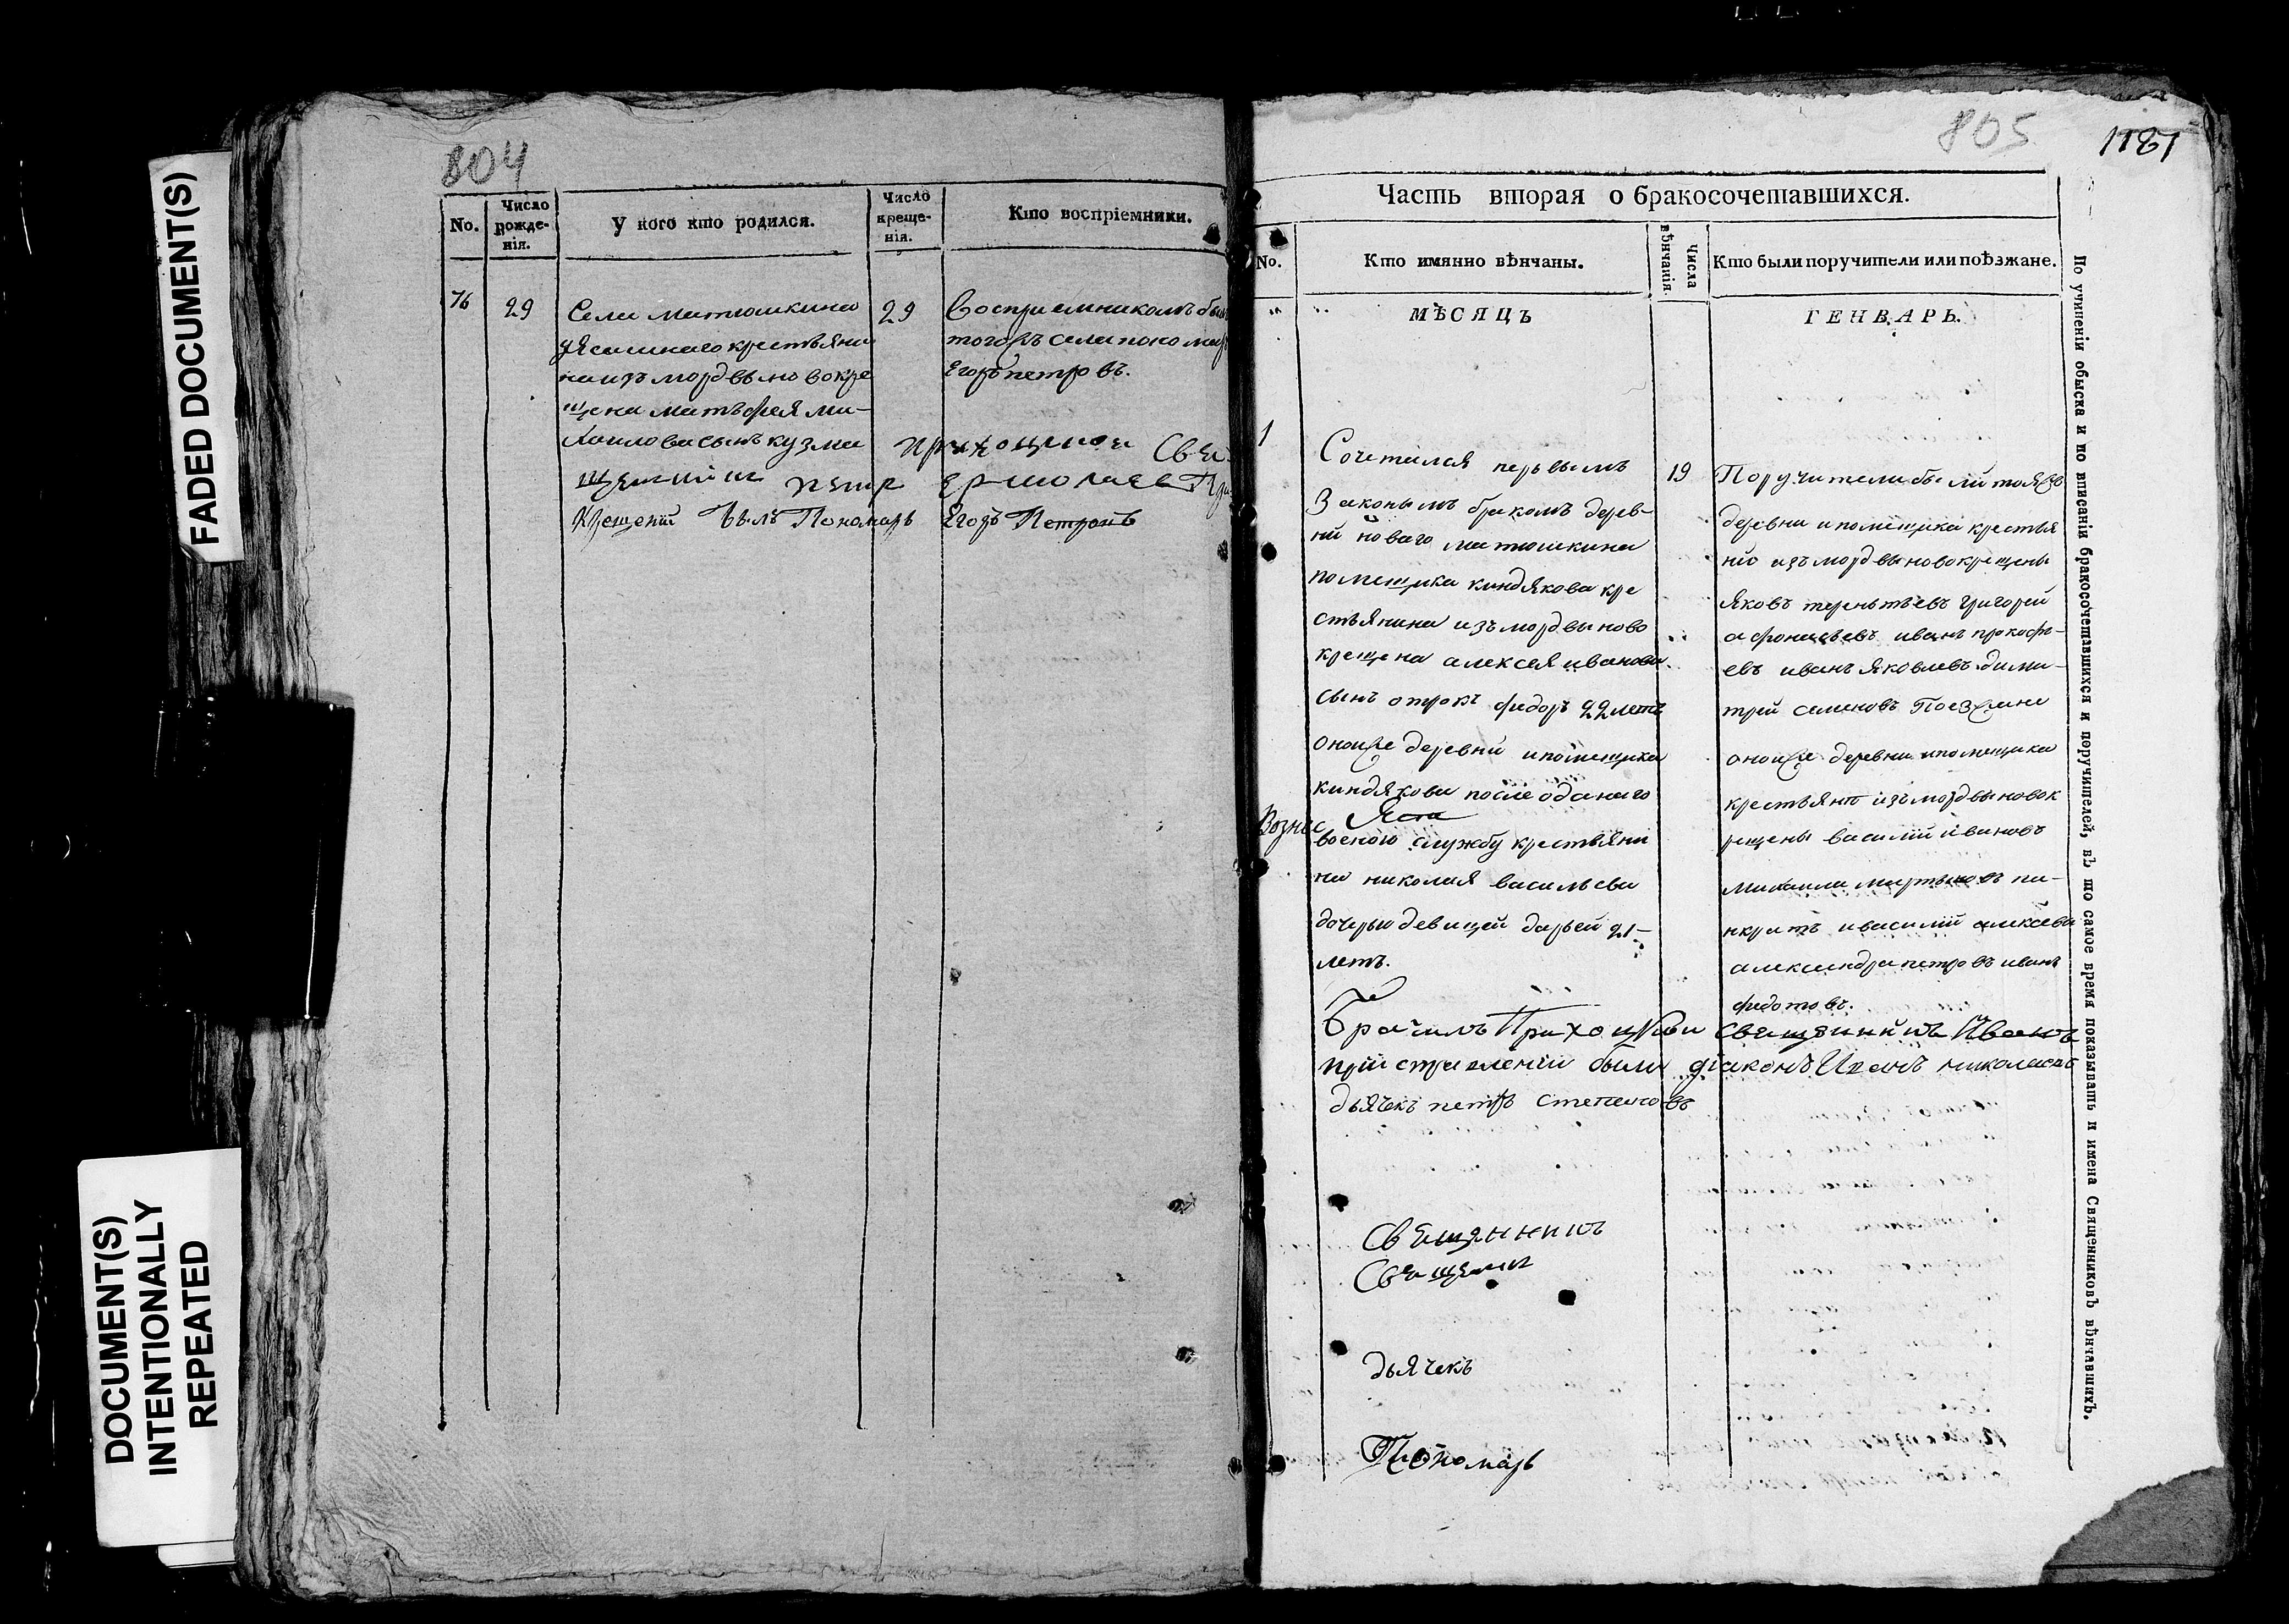 FADED DOCUMENT(S)
DOCUMENT(S)
INTENTIONALLY
REPEATED
804
No.
Число рожде-нія.
У кого кто родился.
Число креще-нія.
Кто воспріемники.
76
29
Села матюшкина
ясашнаго крестьяни
на изъ мордвы новокре
щена матъфея ми-
хаилова сынъ кузма
29
Восприемникомъ был
тогожъ села поно мар
Егоръ петровъ.
Свя
щенникъ петр ермолаев При
Крещении былъ Пономарь Егоръ Петровъ
805
1181
Часть вторая о бракосочетавшихся.
No.
Кто имянно вѣнчаны.
Числа вѣнчанія.
Кто были поручители или поѣзжане.
МѢСЯЦЪ
ГЕНВАРЬ.
1
Сочетался первымъ
Законымъ бракомъ дерев-
ни новаго матюшкина
помещика киндякова кре
стьянина изъ мордвы ново
крещена алексея иванова
сынъ отрокъ федоръ 22 летъ
оной же деревни и помещика
киндякова после оданаго
военою службу крестьяни
на николая васильева
дочерью девицей дарьей 21-
летъ.
19
Поручители были тояже
деревни и помещика крестья
не изъ мордвы новокрещены
яковъ терентьевъ григорей
афонасьевъ иванъ прокофь-
евъ иванъ яковлевъ дими-
трей семеновъ Поезжане
оной же деревни и помещика
крестьяне изъ мордвы новок
рещены василий ивановъ
михаила мартыновъ па-
нкратъ и василий алексевы
александра петровъ иванъ
федотовъ.
священникъ Иванъ
при стравлении были диаконъ Иванъ николаевъ
дьячекъ петръ степановъ
Священникъ
Священн
дьячекъ
Пономарь
По учиненіи обыска и по вписаніи бракосочетавшихся и поручителей, въ то самое время показывать и имена Священниковъ вѣнчавшихъ.